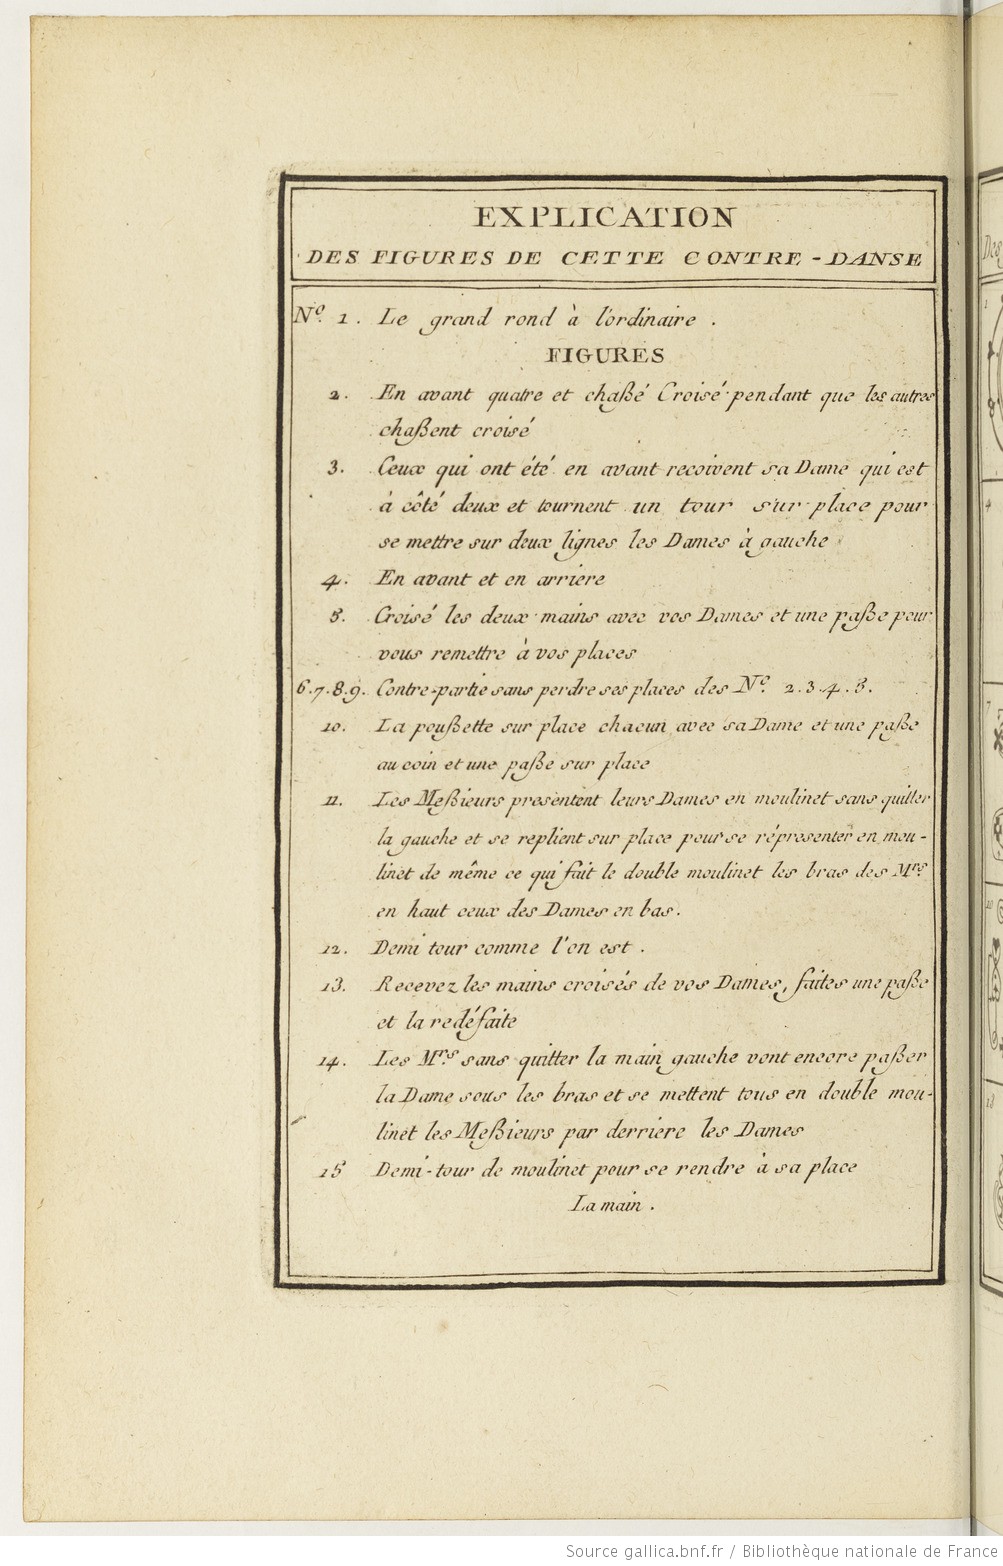 EXPLICATION
DES FIGURES DE CETTE CONTRE-DANSE
N.º 1. Le grand rond à l'ordinaire.
FIGURES
2. En avant quatre et chaßé Croisé pendant que les autres
chaßent croisé
3. Ceux qui ont été en avant recoivent sa Dame qui est
à côté deux et tournent un tour sur place pour
se mettre sur deux lignes les Dames à gauche
4. En avant et en arriere
5. Croisé les deux mains avec vos Dames et une paße pour
vous remettre à vos places
6.7.8.9. Contre-partie sans perdre ses places des N.º 2.3.4.5.
10. La poußette sur place chacun avec sa Dame et une paße
au coin et une paße sur place
11. Les Meßieurs présentent leurs Dames en moulinet sans quitter
la gauche et se replient sur place pour se répresenter en mou-
linet de même ce qui fait le double moulinet les bras des M.rs
en haut ceux des Dames en bas.
12. Demi tour comme l'on est.
13. Recevez les mains croisés de vos Dames, faites une paße
et la redéfaite
14. Les M.rs sans quitter la main gauche vont encore paßer
la Dame sous les bras et se mettent tous en double mou-
linet les Meßieurs par derriere les Dames
15 Demi-tour de moulinet pour se rendre à sa place
La main.
Des
1
4
7
10
13
Source gallica.bnf.fr / Bibliothèque nationale de France